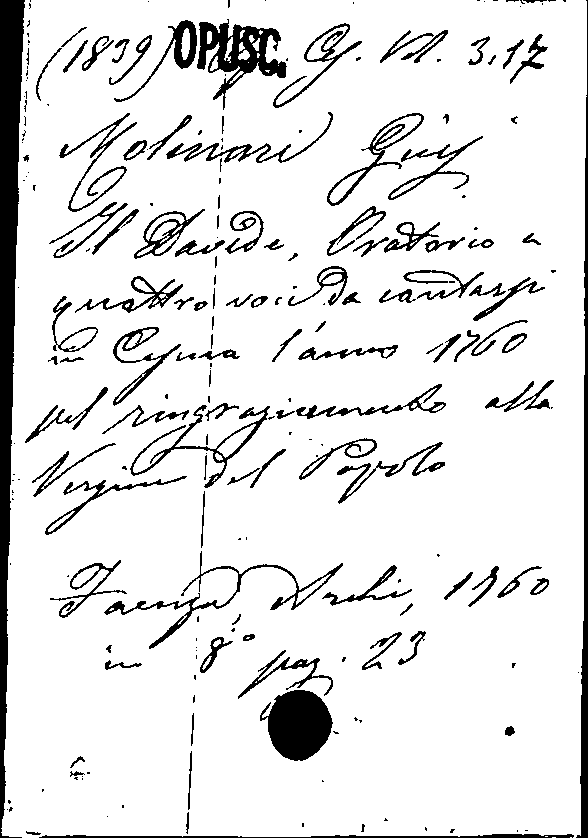 (1839) OPUSC. G. VI. 3.17
Molinari
Il Davide, Oratorio a
quattro voci da cantarsi
in Cesena l'anno 1760
pel ringraziamento alla
Vergine del Popolo
Faenza, Archi, 1760
in 8° pag. 23